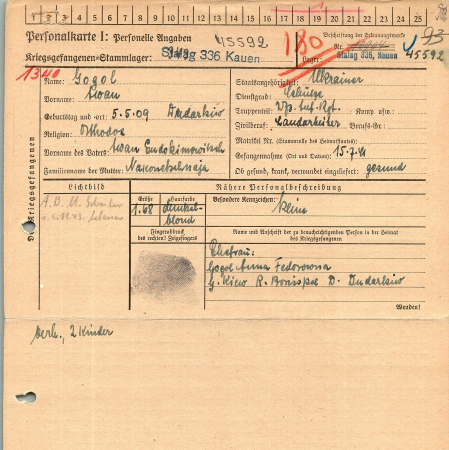 1 2 3 4 5 6 7 8 9 10 11 12 13 14 15 16 17 18 19 20 21 22 23 24 25
Personalkarte I: Personelle Angaben
Beschriftung der Erkennungsmarke
45592
180
Nr. 45592
Kriegsgefangenen-Stammlager: Stalag 336 Kauen
Lager: Stalag 336, Kauen
1340
Des Kriegsgefangenen
Name: Gogol
Staatsangehörigkeit: Ukrainer
Vorname: Iwan
Dienstgrad: Schütze
Geburtstag und -ort: 5.5.09 Dudarkiw
Truppenteil: Inf. Rgt. Komp. usw.:
Religion: Orthodox
Zivilberuf: Landarbeiter Berufs-Gr.:
Vorname des Vaters: Iwan Ewdokimowitsch
Matrikel Nr. (Stammrolle des Heimatstaates):
Gefangennahme (Ort und Datum): 15.7.41
Familienname der Mutter:
Ob gesund, krank, verwundet eingeliefert: gesund
Lichtbild
Nähere Personalbeschreibung
Größe
Haarfarbe
Besondere Kennzeichen:
1.68
dunkelblond
keine
Fingerabdruck
des rechten! Zeigefingers
Name und Anschrift der zu benachrichtigenden Person in der Heimat
des Kriegsgefangenen
Ehefrau:
Gogol Anna Fedorowna
G. Kiew R. Borispol D. Dudarkiw
Wenden!
verh., 2 Kinder